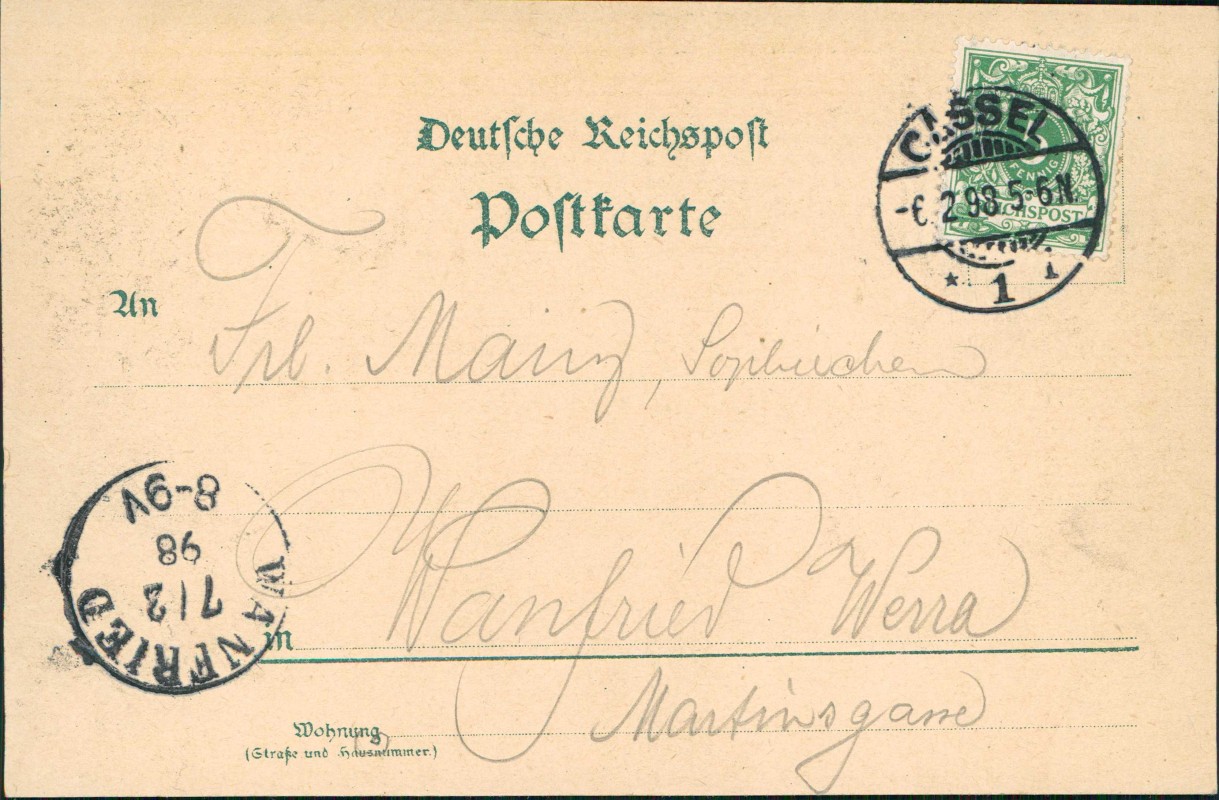 Deutsche Reichspost
Postkarte
CASSEL
-6. 2. 98 5-6N
* 1 1
5
PFENNIG
REICHSPOST
An
Frl. Mainz,
WANFRIED
7/2
98
8-9V
in
Wanfried a Werra
Wohnung
(Straße und Hausnummer.)
Martinsgasse